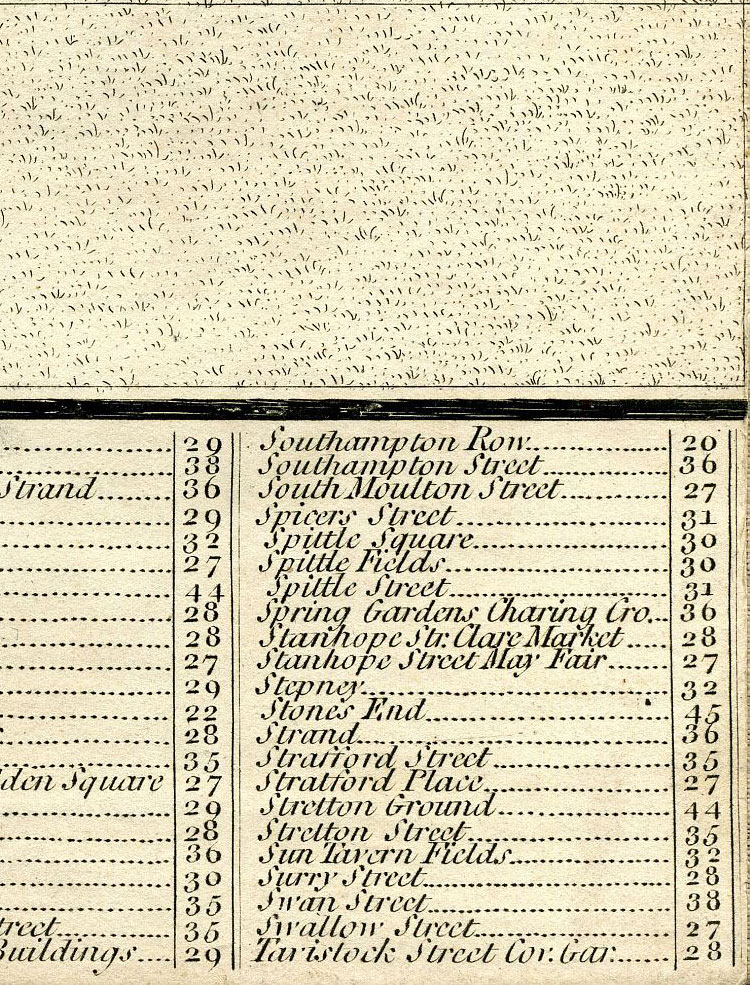 29
38
Strand 36
29
32
27
44
28
28
27
29
22
28
35
den Square 27
29
28
36
30
35
treet 35
Buildings 29
Southampton Row 20
Southampton Street 36
South Moulton Street 27
Spicers Street 31
Spittle Square 30
Spittle Fields 30
Spittle Street 31
Spring Gardens Charing Cro. 36
Stanhope Str. Clare Market 28
Stanhope Street May Fair 27
Stepney 32
Stones End 45
Strand 36
Strafford Street 35
Stratford Place 27
Stretton Ground 44
Stretton Street 35
Sun Tavern Fields 32
Surry Street 28
Swan Street 38
Swallow Street 27
Tavistock Street Cov. Gar. 28